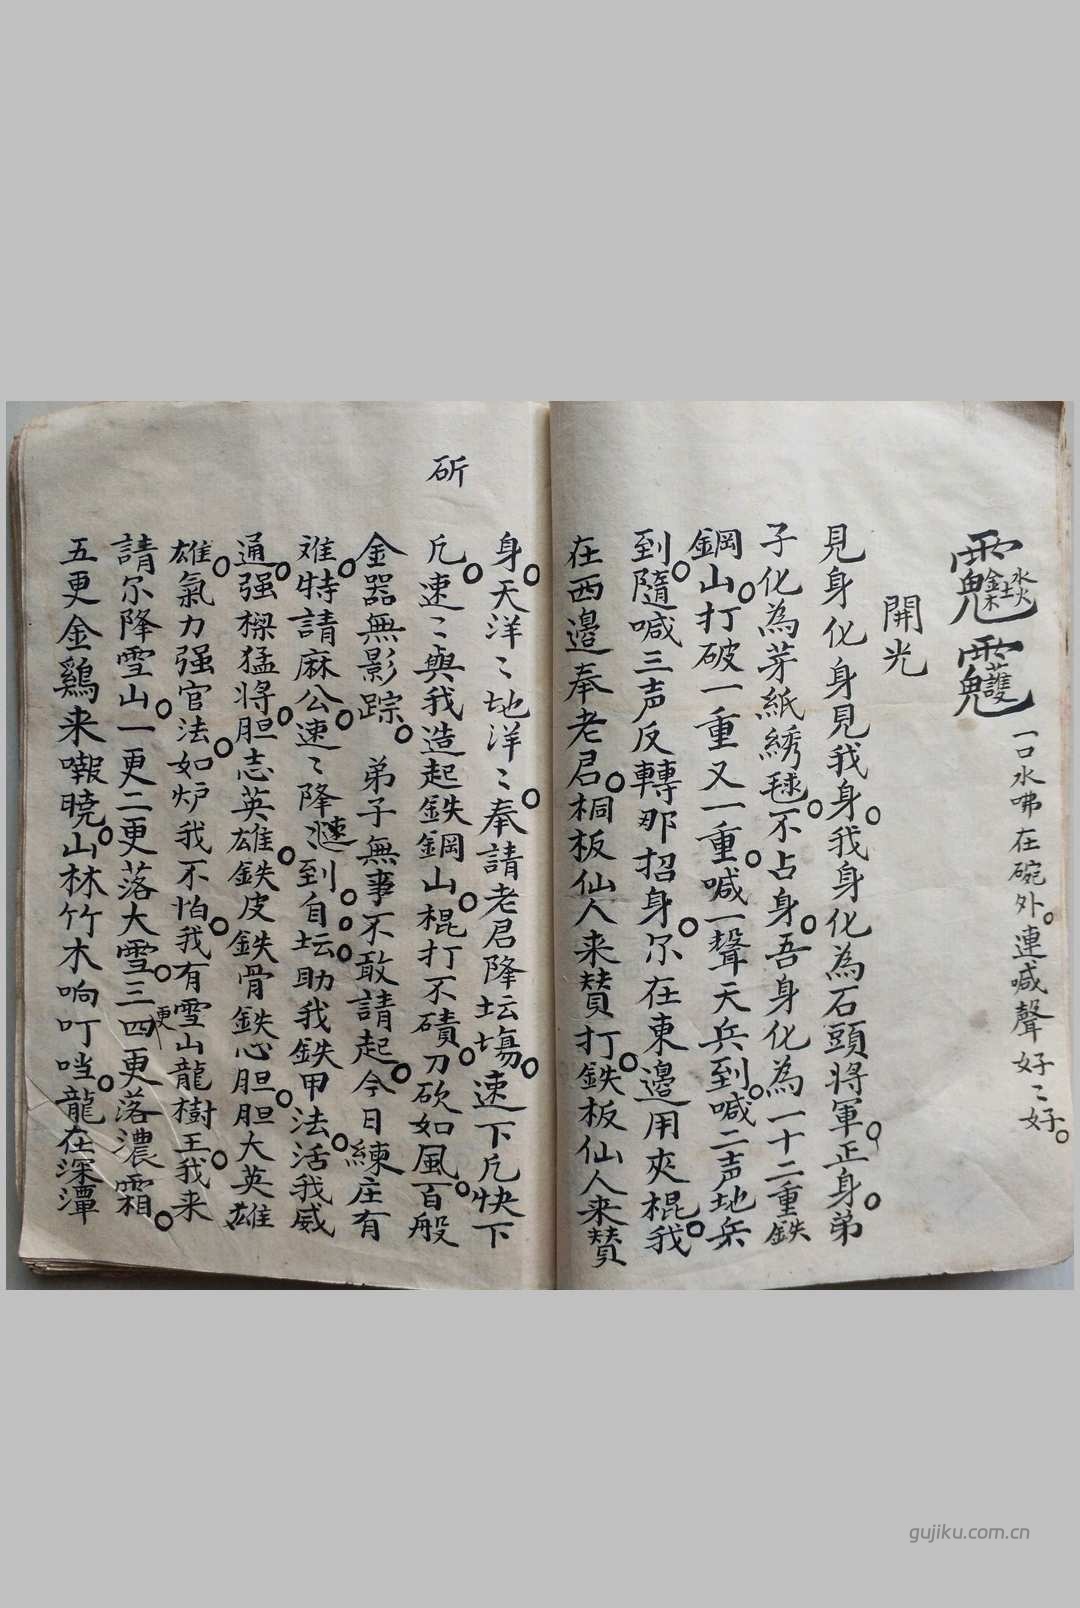 水火金木土 護 一口水咈在碗外。連喊聲好〻好。
開光
見身化身見我身。我身化為石頭將軍。正身。弟
子化為芽紙綉毬。不占身。吾身化為一十二重鉄
鋼山。打破一重又一重。喊一聲天兵到。喊二声地兵
到。隨喊三声反轉那招身。尔在東邉用夾棍。我
在西邉奉老君。桐板仙人来賛打。鉄板仙人来賛
身。天洋〻地洋〻。奉請老君降坛塲。速下凡快下
凡。速〻與我造起鉄鋼山。棍打不磧。刀砍如風。百般
斫
金器無影踪。弟子無事不敢請起。今日練庄有
难。特請麻公。速〻降漣到。自坛助我鉄甲法。活我威
通。强樑猛将。胆志英雄。鉄皮鉄骨鉄心胆。胆大英雄
雄。氣力强官法。如炉我不怕。我有雪山龍樹王。我来
請尔降雪山。一更二更落大雪。三更四更落濃霜。
五更金鷄来嘲曉。山林竹木响叮噹。龍在深潭
gujiku.com.cn